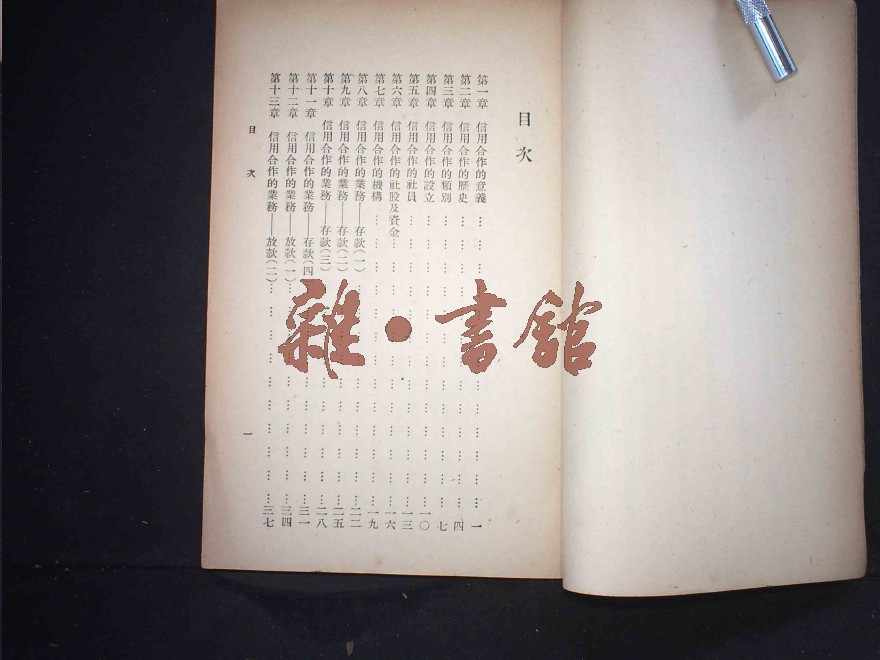 目次
第一章 信用合作的意義……一
第二章 信用合作的歷史……四
第三章 信用合作的類別……七
第四章 信用合作的設立……一〇
第五章 信用合作的社員……一三
第六章 信用合作的社股及資金……一六
第七章 信用合作的機構……一九
第八章 信用合作的業務——存款(一)……二二
第九章 信用合作的業務——存款(二)……二五
第十章 信用合作的業務——存款(三)……二八
第十一章 信用合作的業務——存款(四……三一
第十二章 信用合作的業務——放款(一)……三四
第十三章 信用合作的業務——放款(二)……三七
目次
一
雜·書館